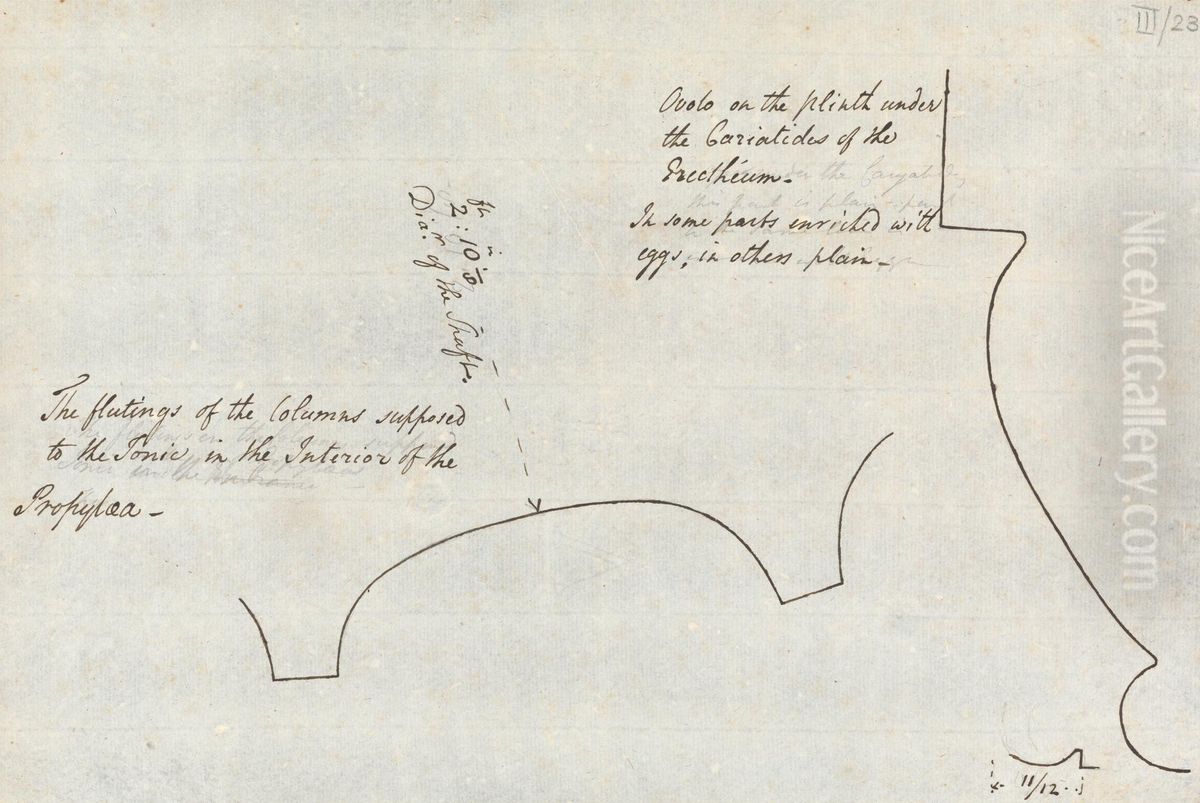 III/23
Ovolo on the plinth under
the Cariatides of the
Erectheum-
In some parts enriched with
eggs, in others plain-
ft in
2:10 1/8
Dia.r of the Shaft.
The flutings of the Columns supposed
to the Ionic in the Interior of the
Propylæa-
11/12
NiceArtGallery.com